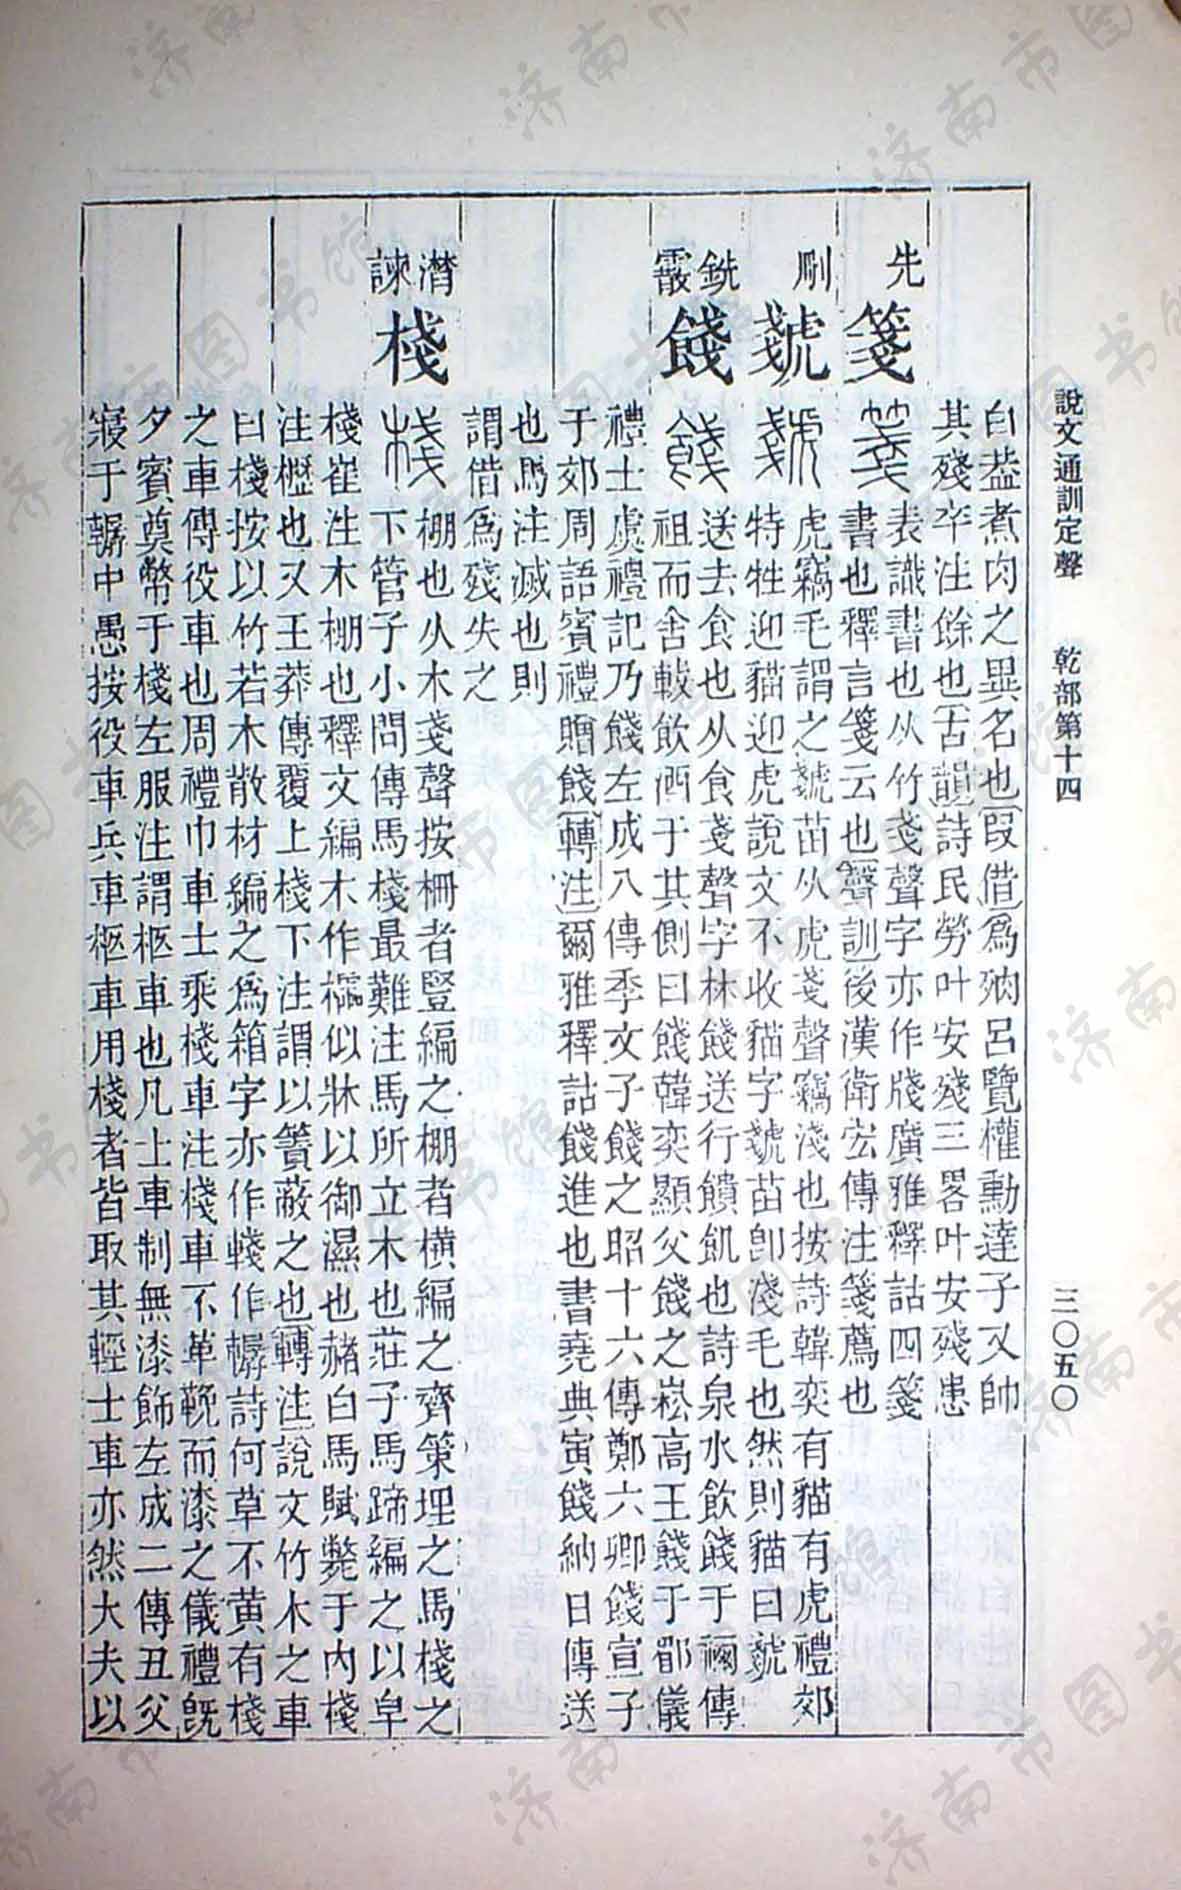 說文通訓定聲 乾部第十四 三〇五〇
白葢煮肉之異名也叚借爲㱚呂覽權勳達子又帥
其殘卒注餘也古韻詩民勞叶安殘三畧叶安殘患
先 箋 表識書也从竹戔聲字亦作牋廣雅釋詁四箋
書也釋言箋云也聲訓後漢衛宏傳注箋薦也
剛 虦 虎竊毛謂之虦苗从虎戔聲竊淺也按詩韓奕有貓有虎禮郊
特牲迎貓迎虎說文不收貓字虦苗卽淺毛也然則貓曰虦
銑 霰 餞 送去食也从食戔聲字林餞送行饋飢也詩泉水飲餞于禰傳
祖而舍軷飲酒于其側曰餞韓奕顯父餞之崧高王餞于郿儀
禮士虞禮記乃餞左成八傳季文子餞之昭十六傳鄭六卿餞宣子
于郊周語賓禮贈餞轉注爾雅釋詁餞進也書堯典寅餞納日傳送
也馬注滅也則
謂借爲殘失之
潸 諫 棧 棚也从木戔聲按柵者豎編之棚者横編之齊策埋之馬棧之
下管子小問傅馬棧最難注馬所立木也莊子馬蹄編之以皁
棧崔注木棚也釋文編木作櫺似牀以御濕也赭白馬賦斃于內棧
注櫪也又王莽傳覆上棧下注謂以簀蔽之也轉注說文竹木之車
曰棧按以竹若木散材編之爲箱字亦作輚作轏詩何草不黄有棧
之車傳役車也周禮巾車士乘棧車注棧車不革鞔而漆之儀禮旣
夕賓奠幣于棧左服注謂柩車也凡士車制無漆飾左成二傳丑父
寢于轏中愚按役車兵車柩車用棧者皆取其輕士車亦然大夫以